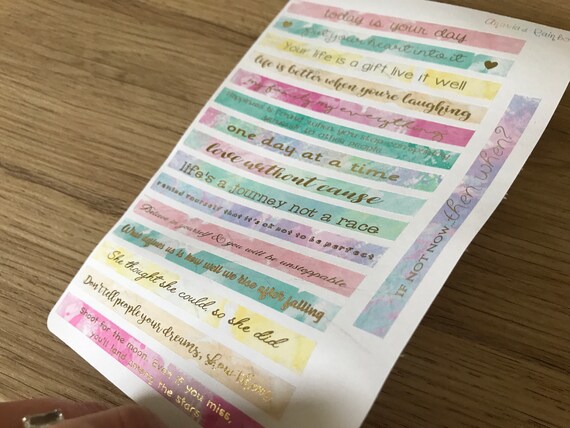 today is your day
put your heart into it
Your life is a gift live it well
life is better when you're laughing
my family my everything
one day at a time
love without cause
life's a journey not a race
remind yourself that it's ok not to be perfect
Believe in yourself & you will be unstoppable
What defines us is how well we rise after falling
She thought she could, so she did
Don't tell people your dreams, show them
Shoot for the moon. Even if you miss,
you'll land among the stars
IF NOT NOW...then when?
Rainbow